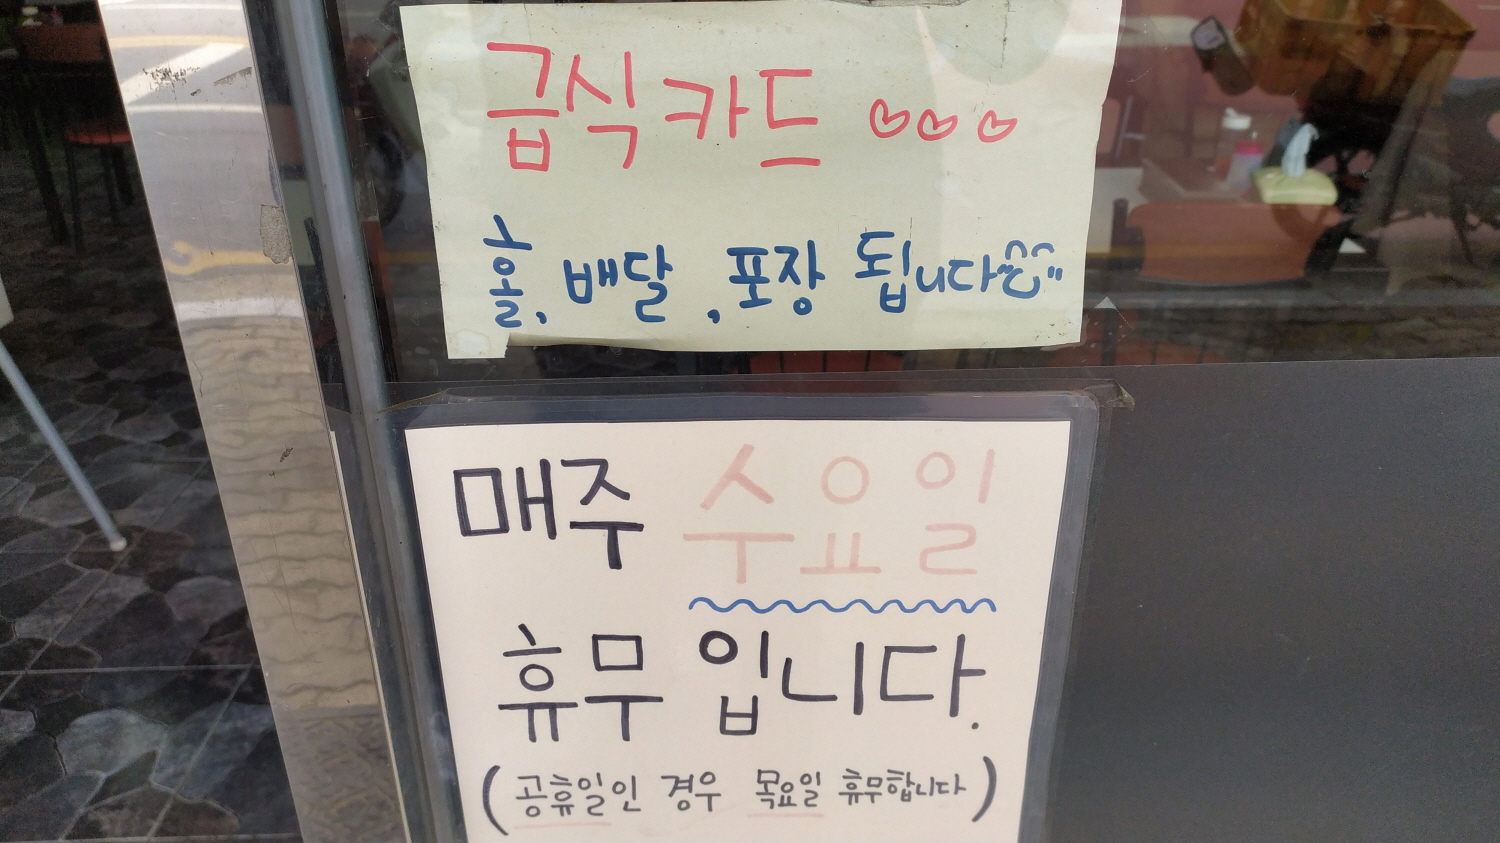 급식카드 ♡♡♡
홀, 배달, 포장 됩니다^^
매주 수요일
휴무 입니다.
(공휴일인 경우 목요일 휴무합니다)